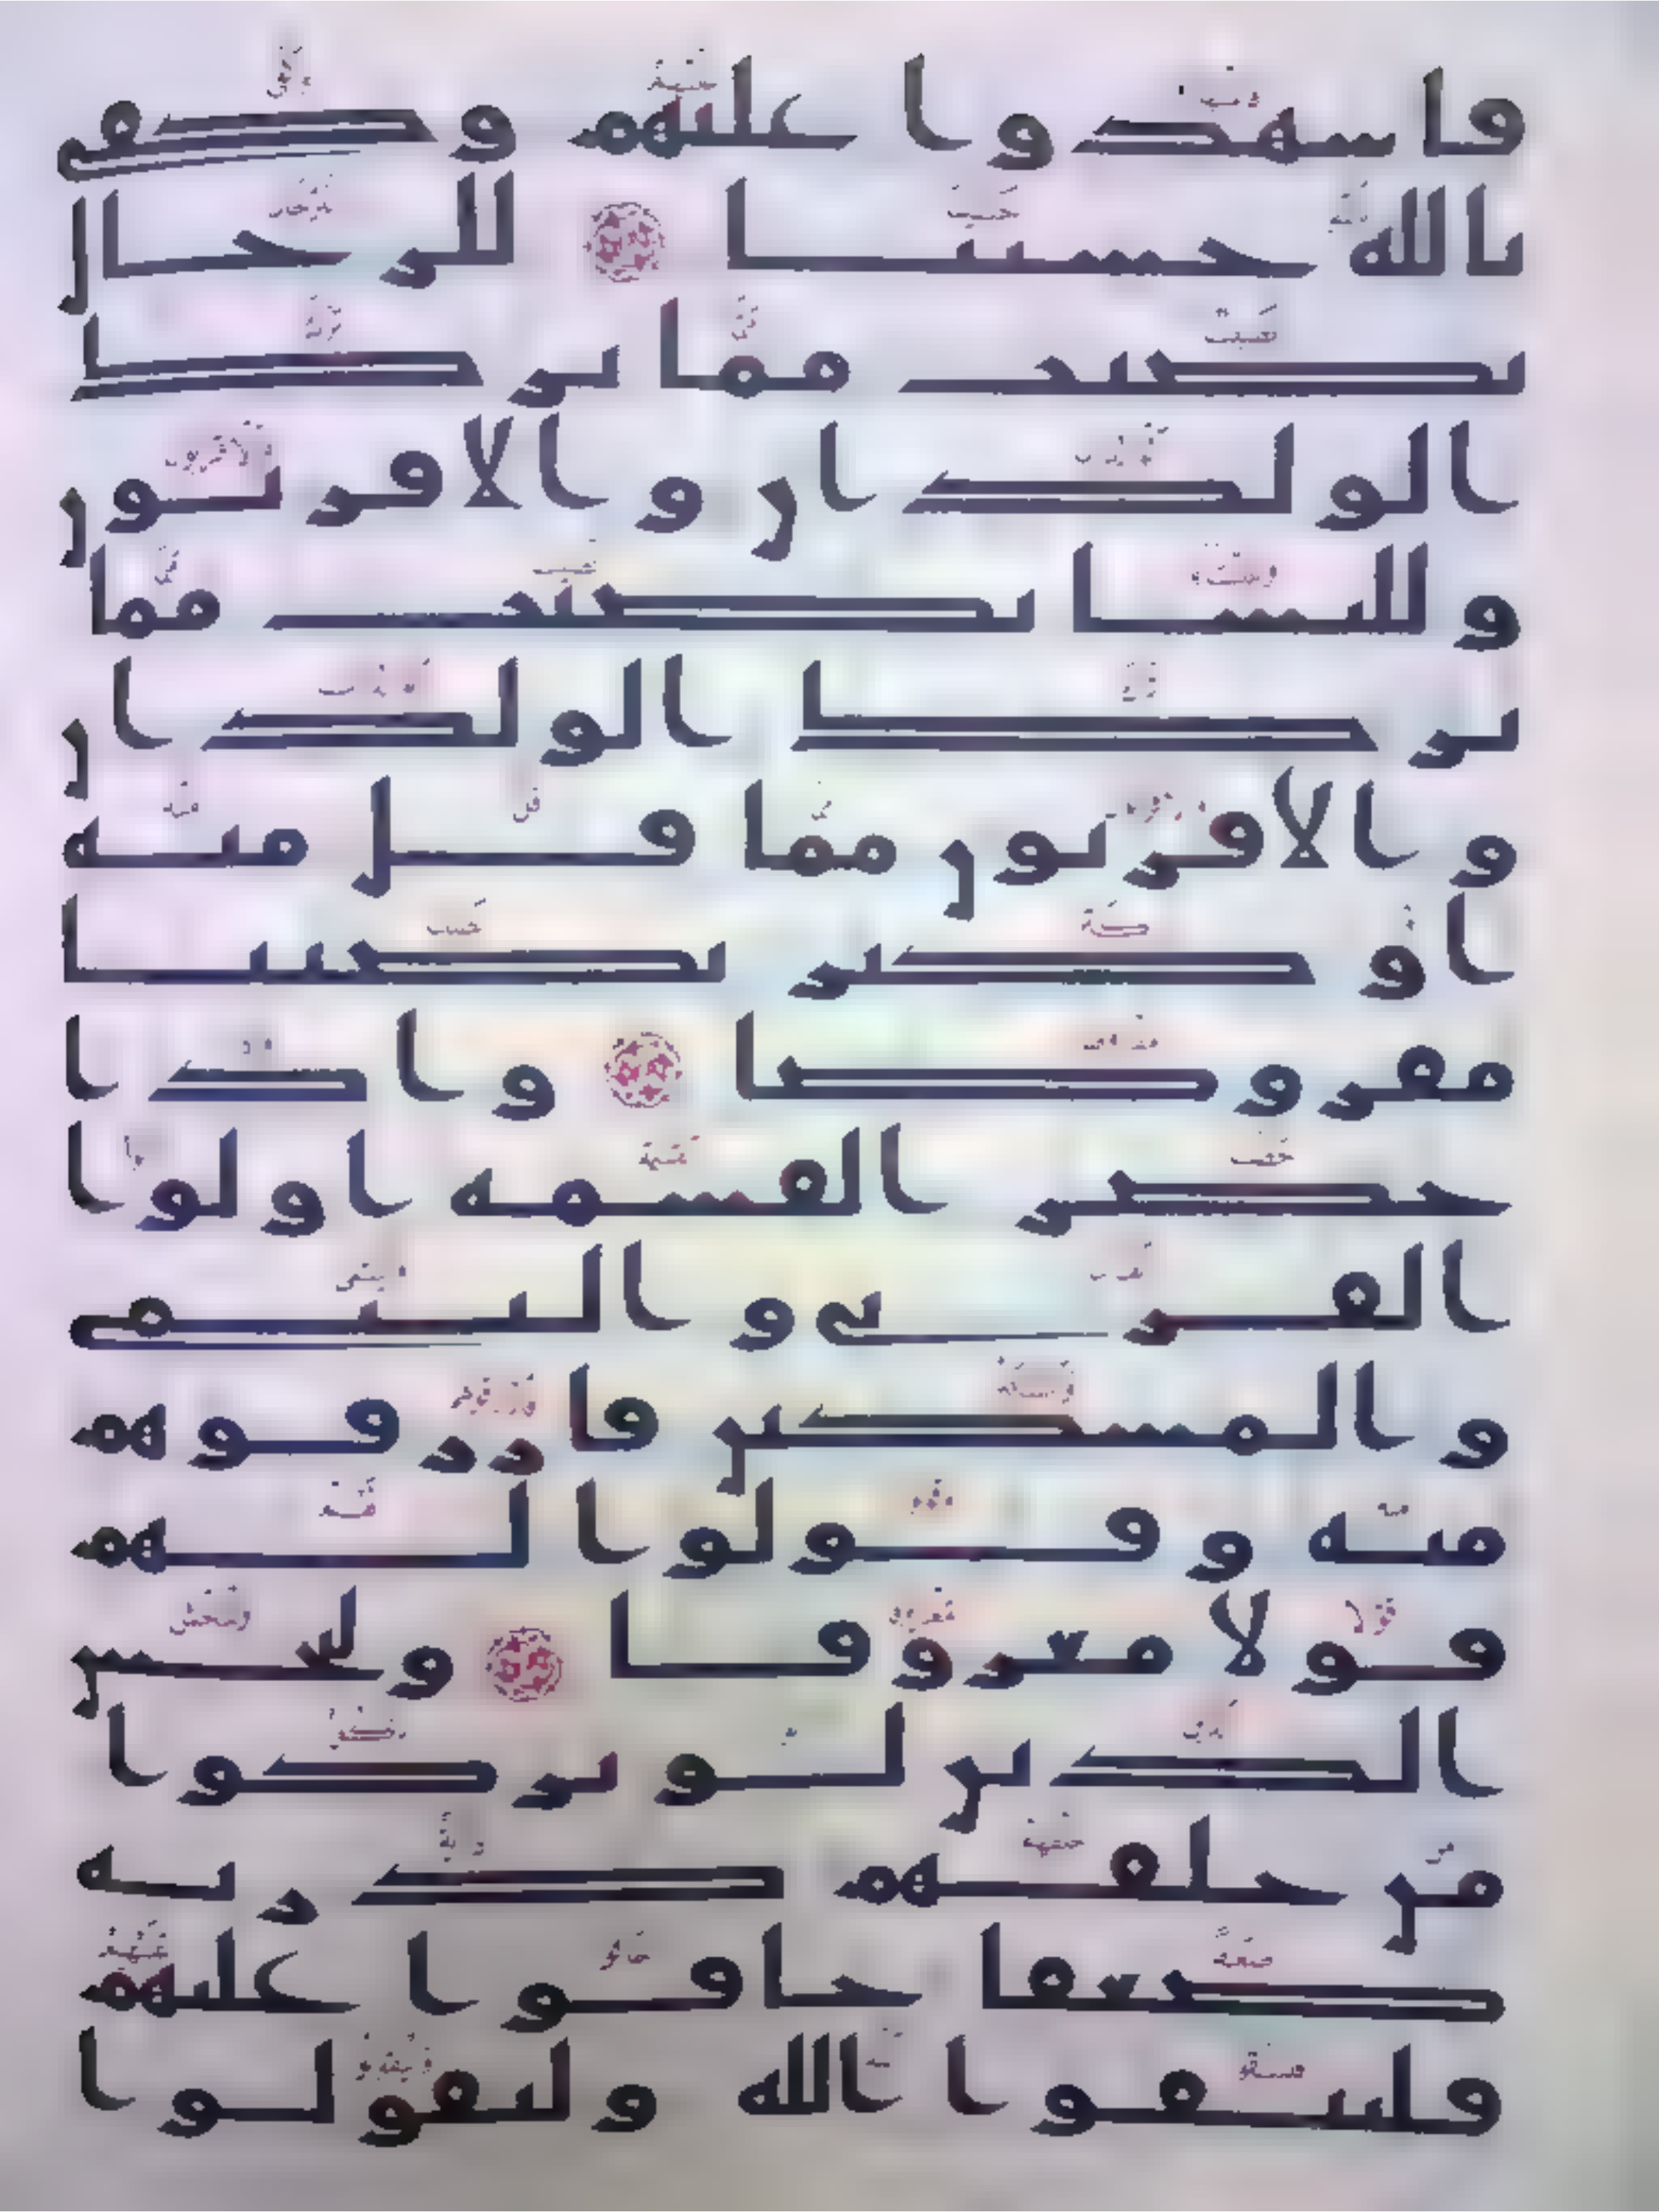 فاشهدوا عليهم وكفى
بالله حسيبا للرجال
نصيب مما ترك
الولدان والاقربون
وللنسا نصيب مما
ترك الولدان
والاقربون مما قل منه
او كثر نصيبا
مفروضا واذا
حضر القسمه اولوا
القربى واليتمى
والمسكين فارزقوهم
منه وقولوا لهم
قولا معروفا وليخش
الذين لو تركوا
من خلفهم ذريه
ضعفا خافوا عليهم
فليتقوا الله وليقولوا